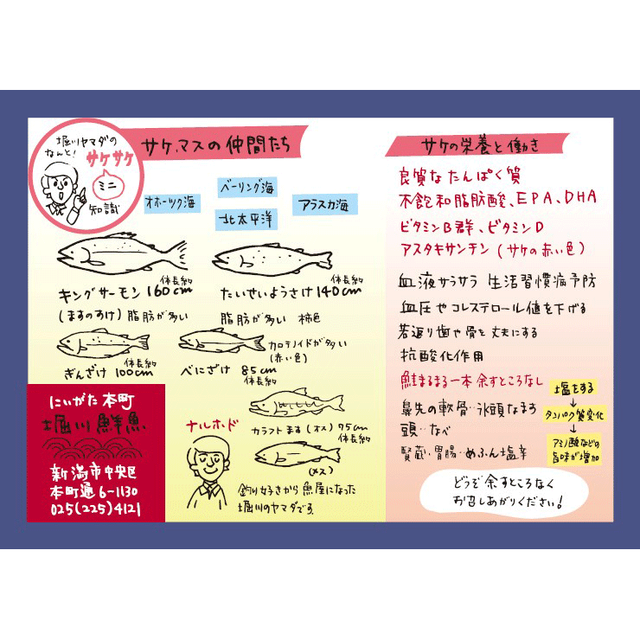 堀川ヤマダの
なんと!
サケサケ
ミニ
知識
サケ、マスの仲間たち
オホーツク海
ベーリング海
北太平洋
アラスカ海
キングサーモン 160cm 体長約
(ますのすけ) 脂肪が多い
たいせいようさけ 140cm 体長約
脂肪が多い 柿色
ぎんざけ 100cm 体長約
べにざけ 85cm 体長約
カロテノイドが多い
(赤い色)
カラフトます (オス) 75cm
体長約
(メス)
ナルホド
釣り好きから魚屋になった
堀川のヤマダです。
にいがた本町
堀川鮮魚
新潟市中央区
本町通6-1130
025(225)4121
サケの栄養と働き
良質なたんぱく質
不飽和脂肪酸、EPA、DHA
ビタミンB群、ビタミンD
アスタキサンチン (サケの赤い色)
血液サラサラ 生活習慣病予防
血圧やコレステロール値を下げる
若返り歯や骨を丈夫にする
抗酸化作用
鮭まるまる一本余すところなし
鼻先の軟骨…氷頭なます
頭…なべ
腎臓・胃腸…めふん塩辛
塩をする
↓
タンパク質変化
↓
アミノ酸などの
旨味が増加
どうぞ余すところなく
お召しあがりください!